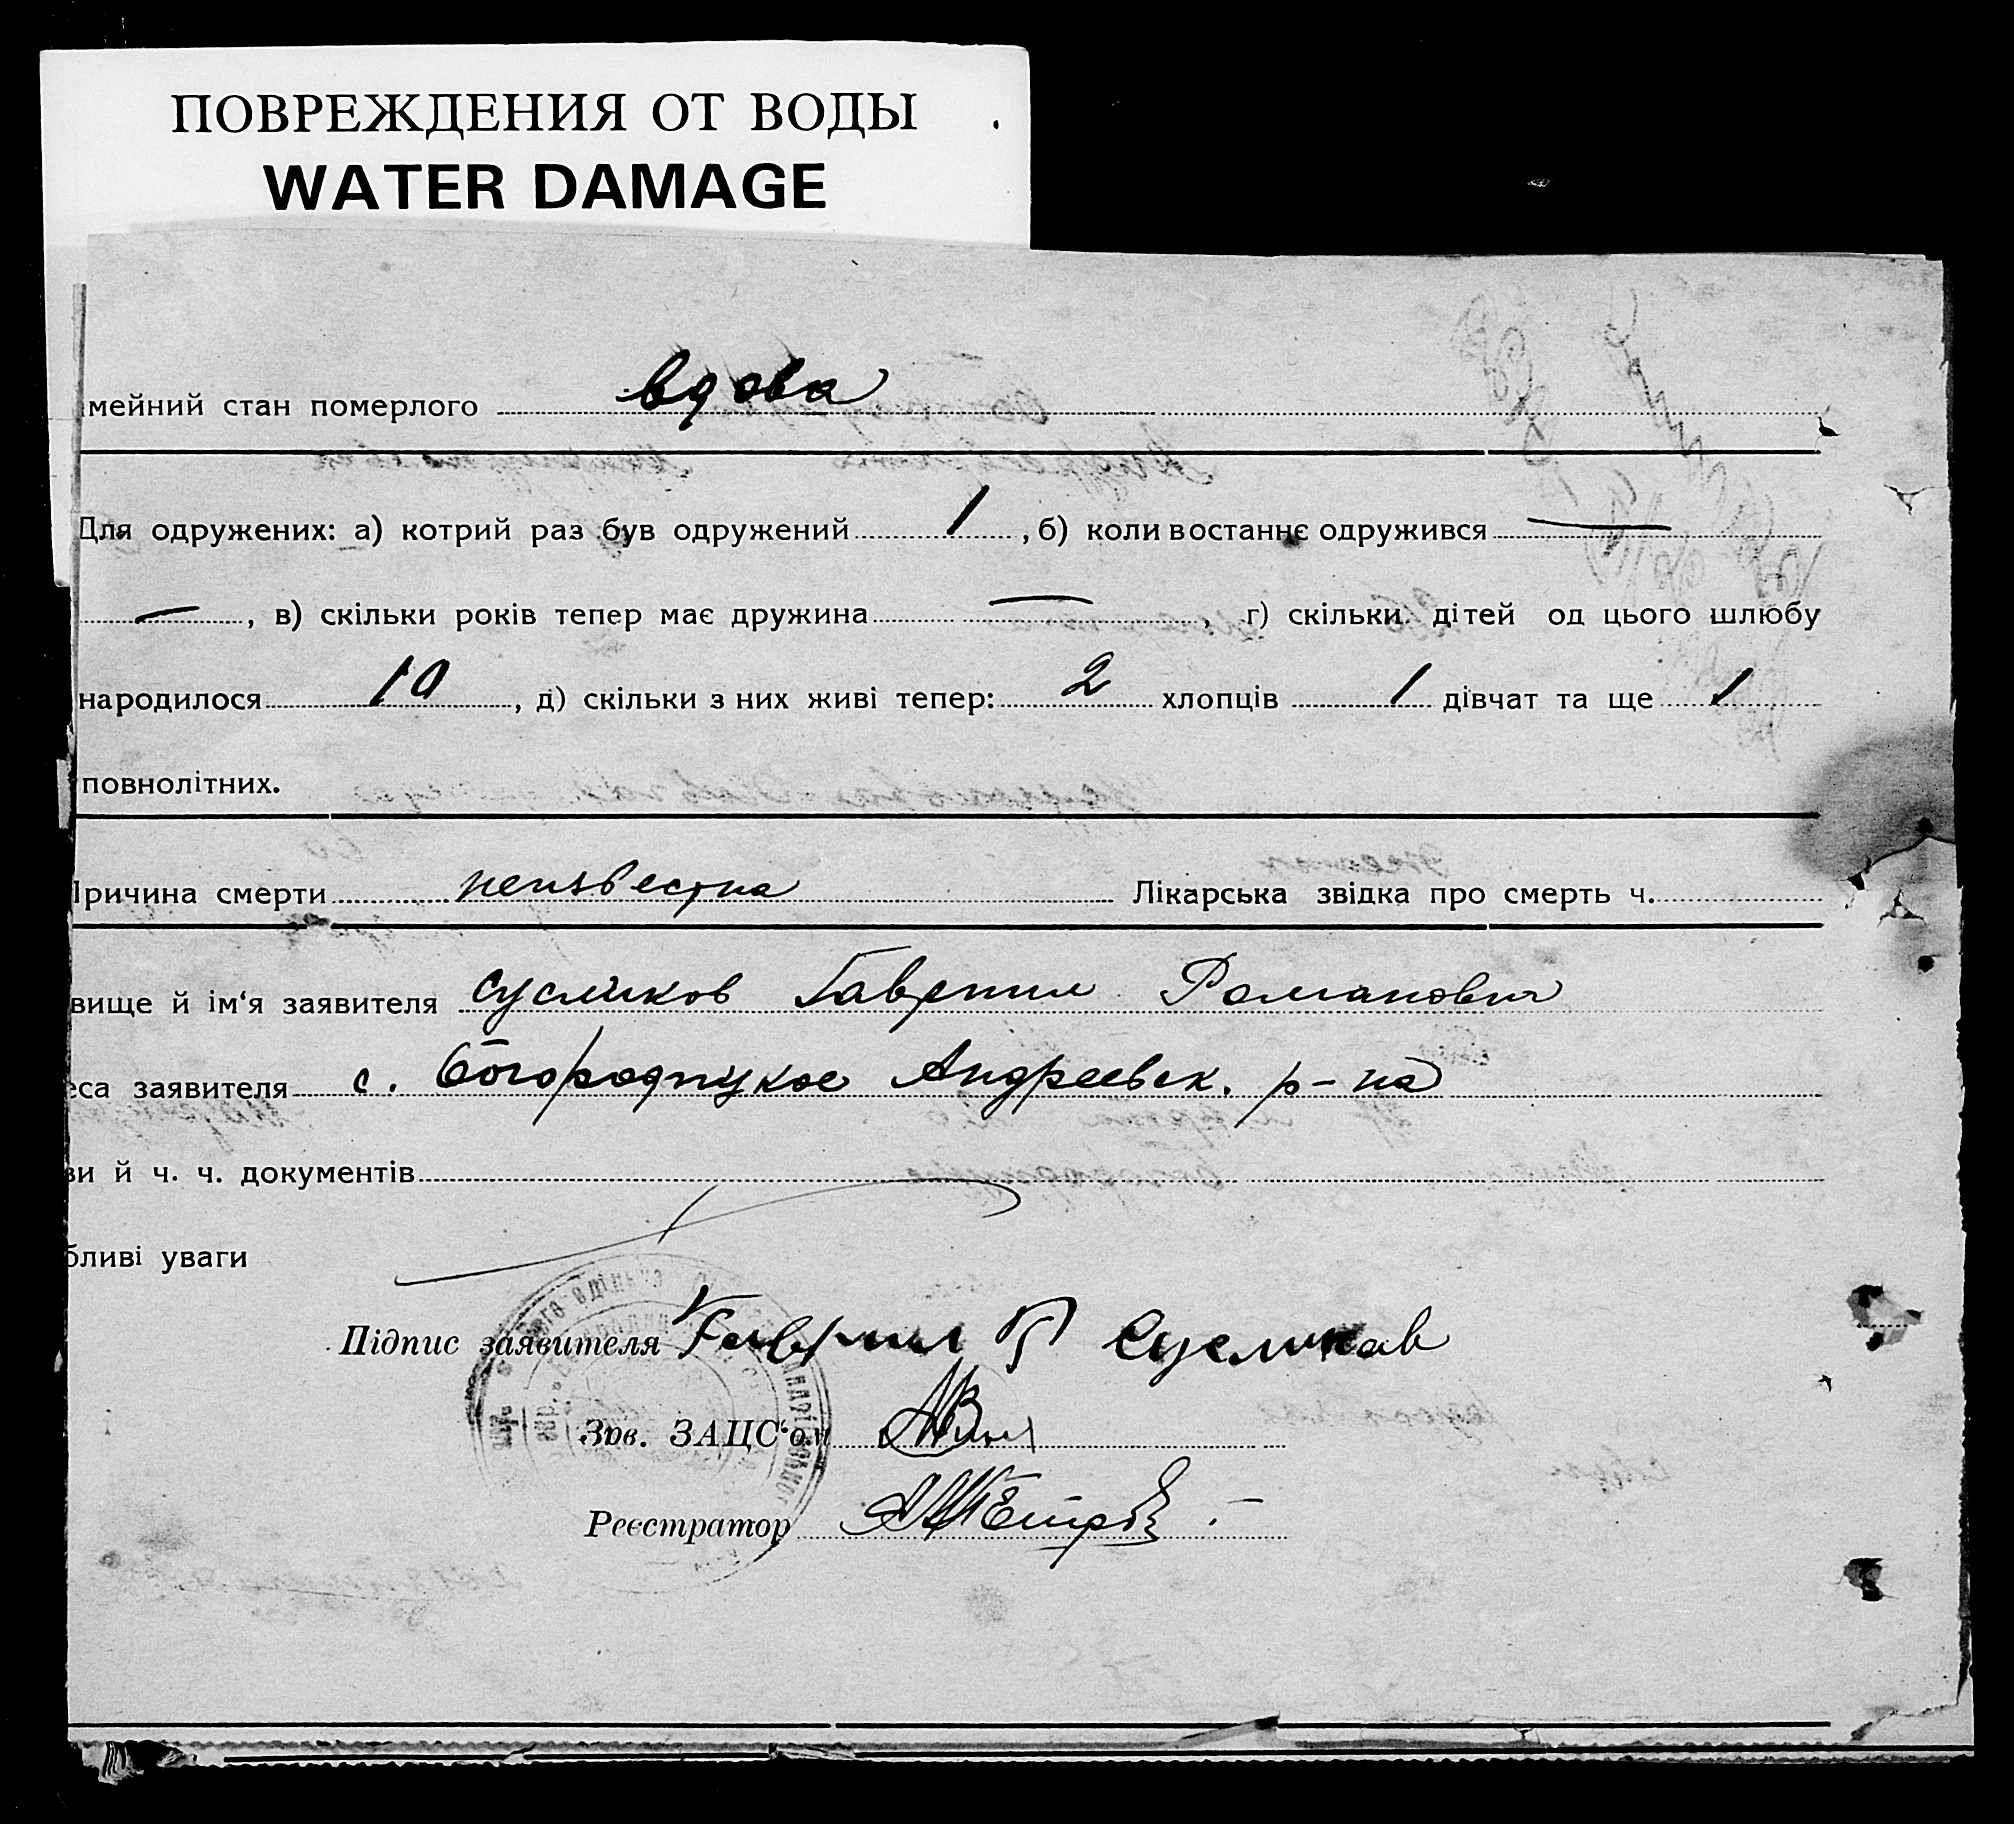 ПОВРЕЖДЕНИЯ ОТ ВОДЫ
WATER DAMAGE
мейний стан померлого вдова
Для одружених: а) котрий раз був одружений 1, б) коли востаннє одружився —
—, в) скільки років тепер має дружина —, г) скільки дітей од цього шлюбу
народилося 10, д) скільки з них живі тепер: 2 хлопців 1 дівчат та ще 1
повнолітних.
Причина смерти неизвестна Лікарська звідка про смерть ч.
вище й ім‘я заявителя Сусликов Гаврил Романович
еса заявителя с. Богородицкое Андреевск. р-на
ви й ч. ч. документів
бливі уваги
Підпис заявителя Гаврил Р Сусликав
Зав. ЗАЦС‘ом
Реєстратор